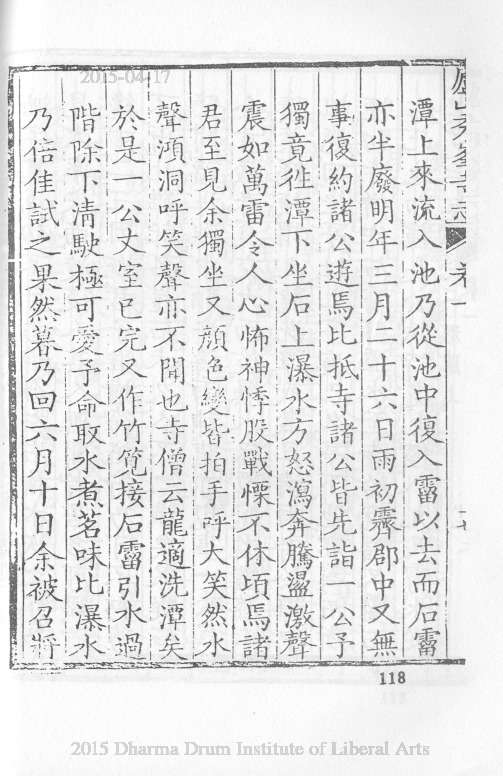 2015-04-17
潭上來流入池乃從池中復入霤以去而石霤
亦半廢明年三月二十六日雨初霽郡中又無
事復約諸公遊焉比抵寺諸公皆先詣一公予
獨竟徃潭下坐石上瀑水方怒瀉奔騰盪激聲
震如萬雷令人心怖神悸股戰慄不休頃焉諸
君至見余獨坐又顏色變皆拍手呼大笑然水
聲澒洞呼笑聲亦不聞也寺僧云龍適洗潭矣
於是一公丈室已完又作竹筧接石霤引水過
階除下清駛極可愛予命取水煮茗味比瀑水
乃倍佳試之果然暮乃回六月十日余被召將
卷一
118
2015 Dharma Drum Institute of Liberal Arts